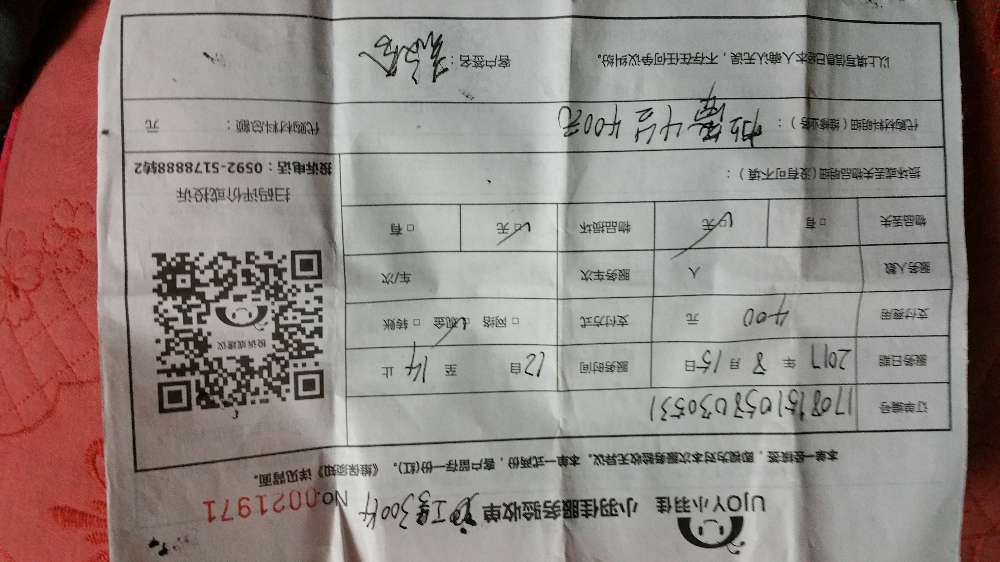 UJOY小羽佳 小羽佳服务验收单 300件 No.0021971
本单一经续签，即视为对本次服务验收无异议。本单一式两份，客户留存一份(红)。《维保须知》详见背面。
订单编号 170815105803053​1
服务日期 2017 年 8 月 15 日 服务时间 12 自 至 14 止
支付费用 400 元 支付方式 □ 网络 ☑ 现金 □ 转账
服务人数 人 服务车次 车/次
物品丢失 □ 有 ☑ 无 物品损坏 ☑ 无 □ 有
损坏或丢失物品明细(没有可不填)：
代购材料明细（维修业务）： 4台400元 代购材料总额： 元
以上填写信息已经本人确认无误，不存在任何争议纠纷。 客户签名：
投诉或建议
扫码评价或投诉
投诉电话：0592-5178888转2